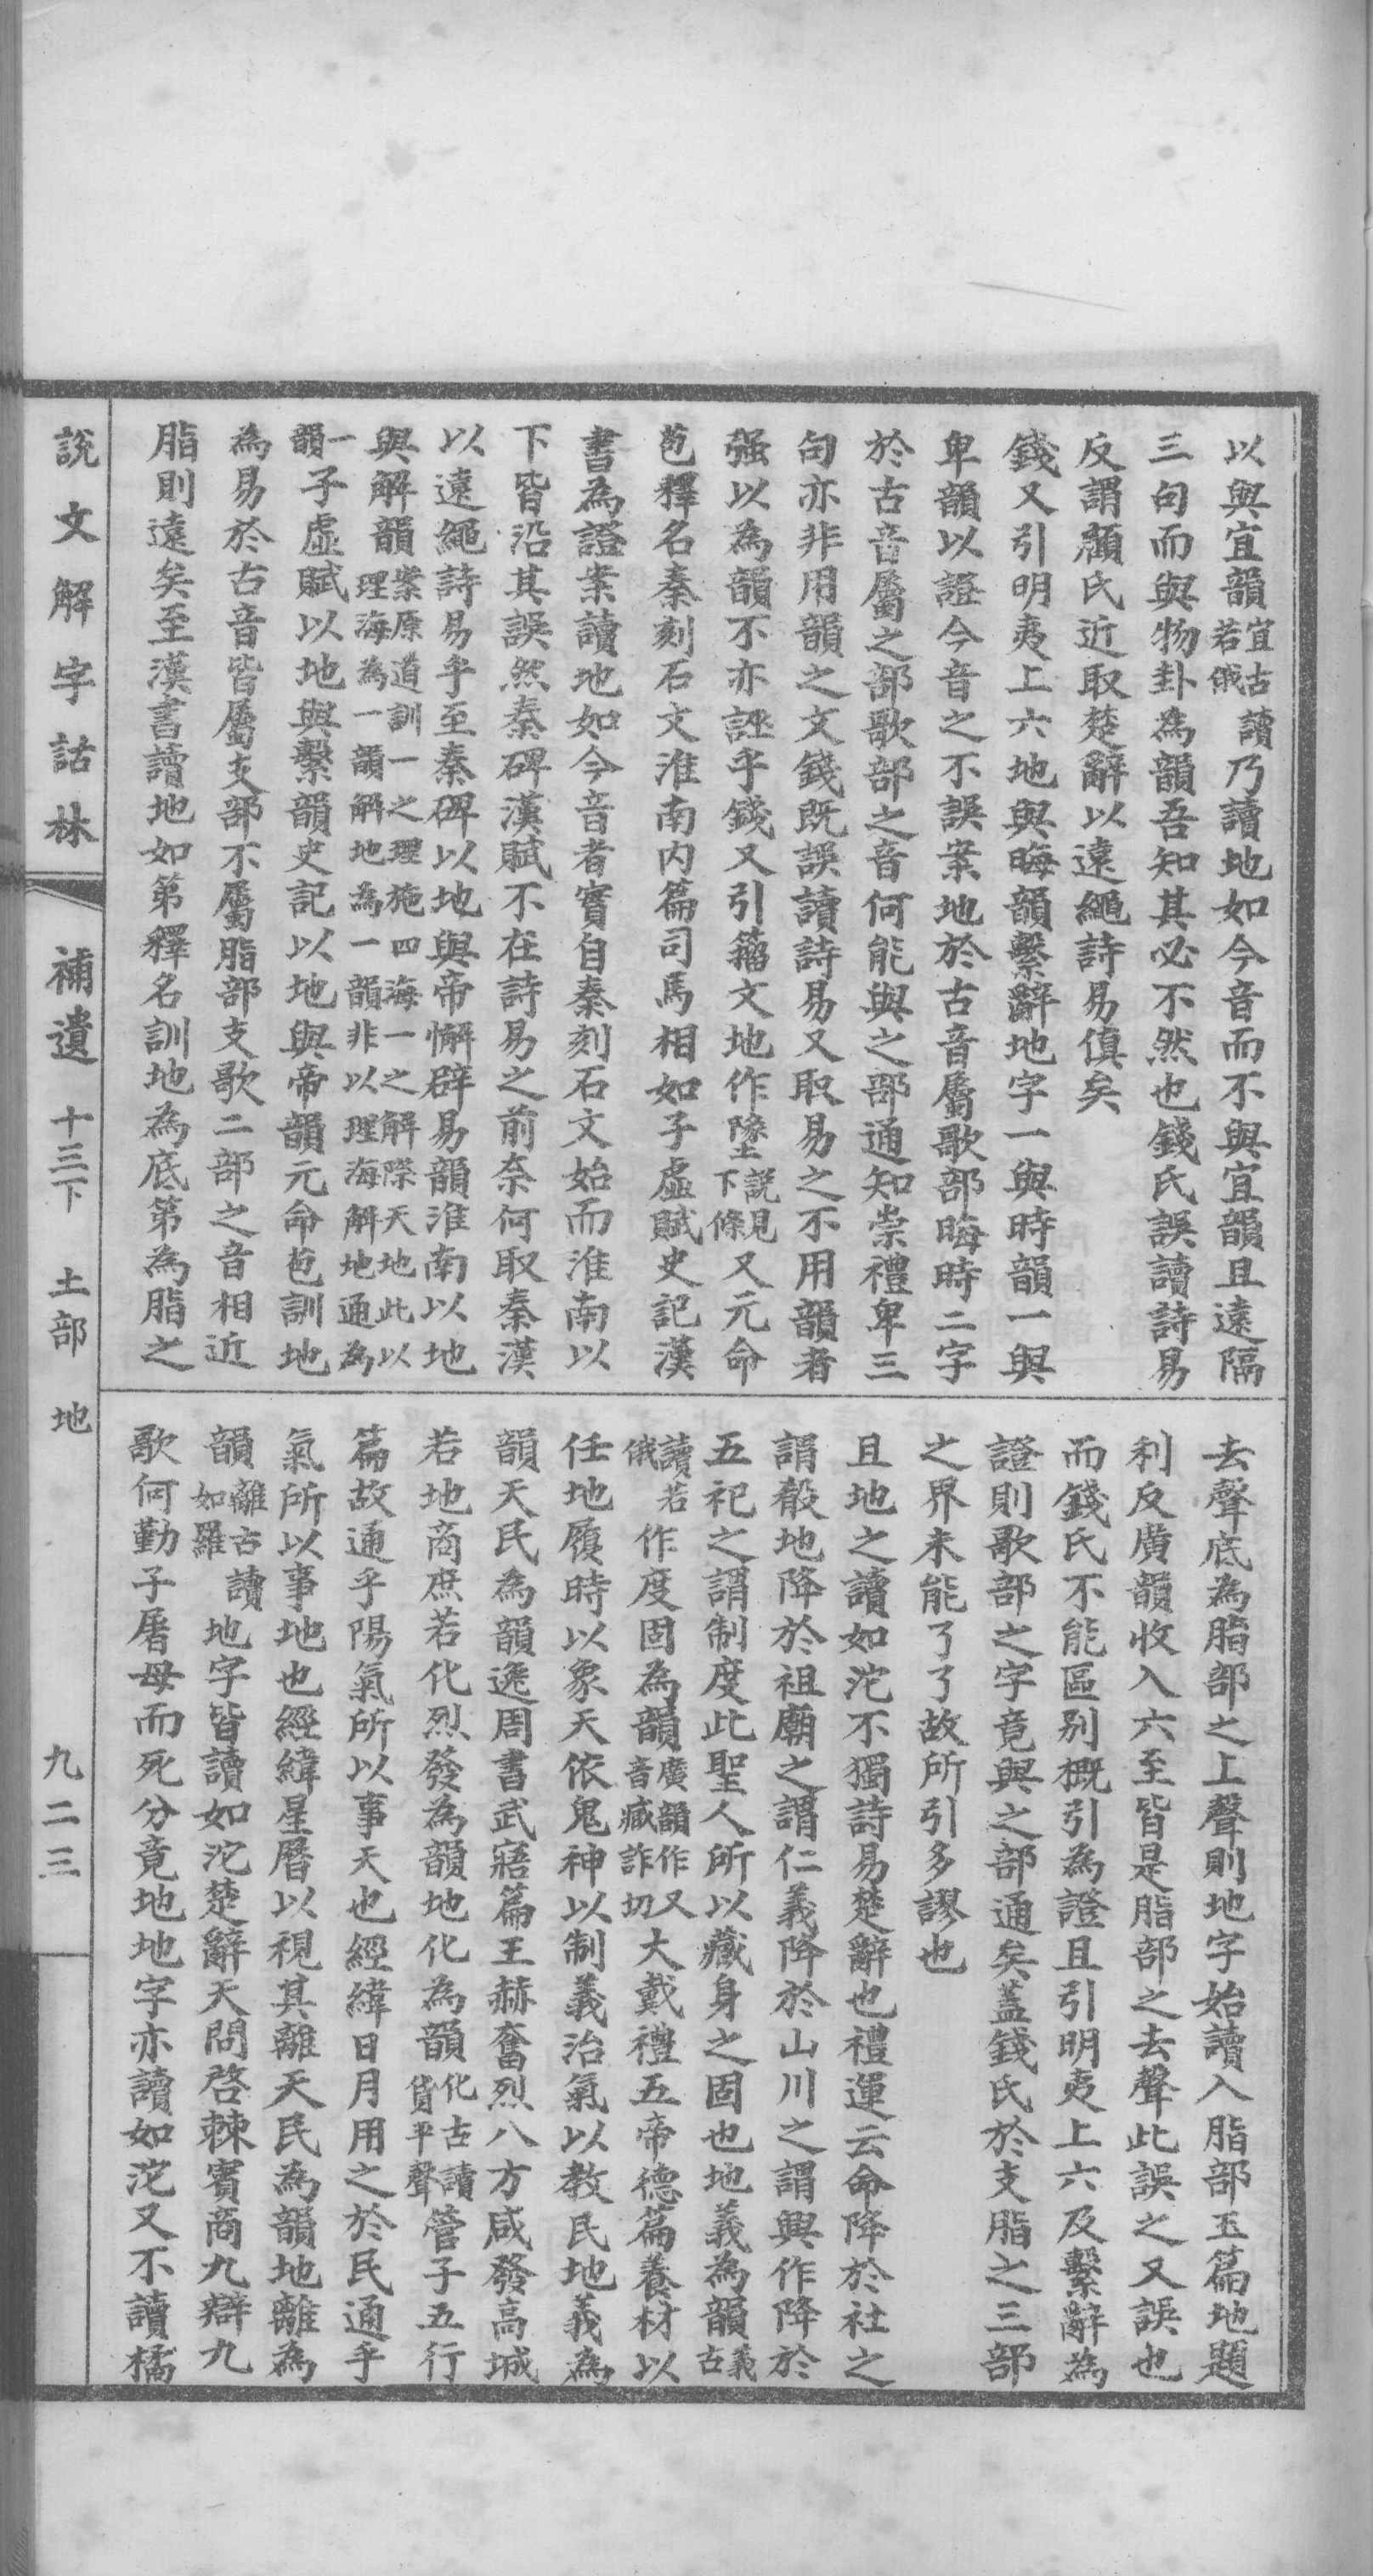 以與宜韻宜古讀若俄乃讀地如今音而不與宜韻且遠隔
三句而與物卦為韻吾知其必不然也錢氏誤讀詩易
反謂顧氏近取楚辭以遠繩詩易傎矣
錢又引明夷上六地與晦韻繫辭地字一與時韻一與
卑韻以證今音之不誤案地於古音屬歌部晦時二字
於古音屬之部歌部之音何能與之部通知崇禮卑三
句亦非用韻之文錢既誤讀詩易又取易之不用韻者
强以為韻不亦誣乎錢又引籀文地作墬說見下條又元命
苞釋名秦刻石文淮南内篇司馬相如子虛賦史記漢
書為證案讀地如今音者實自秦刻石文始而淮南以
下皆沿其誤然秦碑漢賦不在詩易之前奈何取秦漢
以遠繩詩易乎至秦碑以地與帝懈辟易韻淮南以地
與解韻案原道訓一之理施四海一之解際天地此以理海為一韻解地為一韻非以理海解地通為
一韻子虛賦以地與繫韻史記以地與帝韻元命苞訓地
為易於古音皆屬支部不屬脂部支歌二部之音相近
脂則遠矣至漢書讀地如第釋名訓地為底第為脂之
去聲底為脂部之上聲則地字始讀入脂部玉篇地題
利反廣韻收入六至皆是脂部之去聲此誤之又誤也
而錢氏不能區別概引為證且引明夷上六及繫辭為
證則歌部之字竟與之部通矣蓋錢氏於支脂之三部
之界未能了了故所引多謬也
且地之讀如沱不獨詩易楚辭也禮運云命降於社之
謂殽地降於祖廟之謂仁義降於山川之謂興作降於
五祀之謂制度此聖人所以藏身之固也地義為韻義古
讀若俄作度固為韻廣韻作又音臧詐切大戴禮五帝德篇養材以
任地履時以象天依鬼神以制義治氣以教民地義為
韻天民為韻逸周書武寤篇王赫奮烈八方咸發高城
若地商庶若化烈發為韻地化為韻化古讀貨平聲管子五行
篇故通乎陽氣所以事天也經緯日月用之於民通乎
氣所以事地也經緯星曆以視其離天民為韻地離為
韻離古讀如羅地字皆讀如沱楚辭天問啓棘賓商九辯九
歌何勤子屠母而死分竟地地字亦讀如沱又不讀橘
說文解字詁林 補遺 十三下 土部 地 九二三